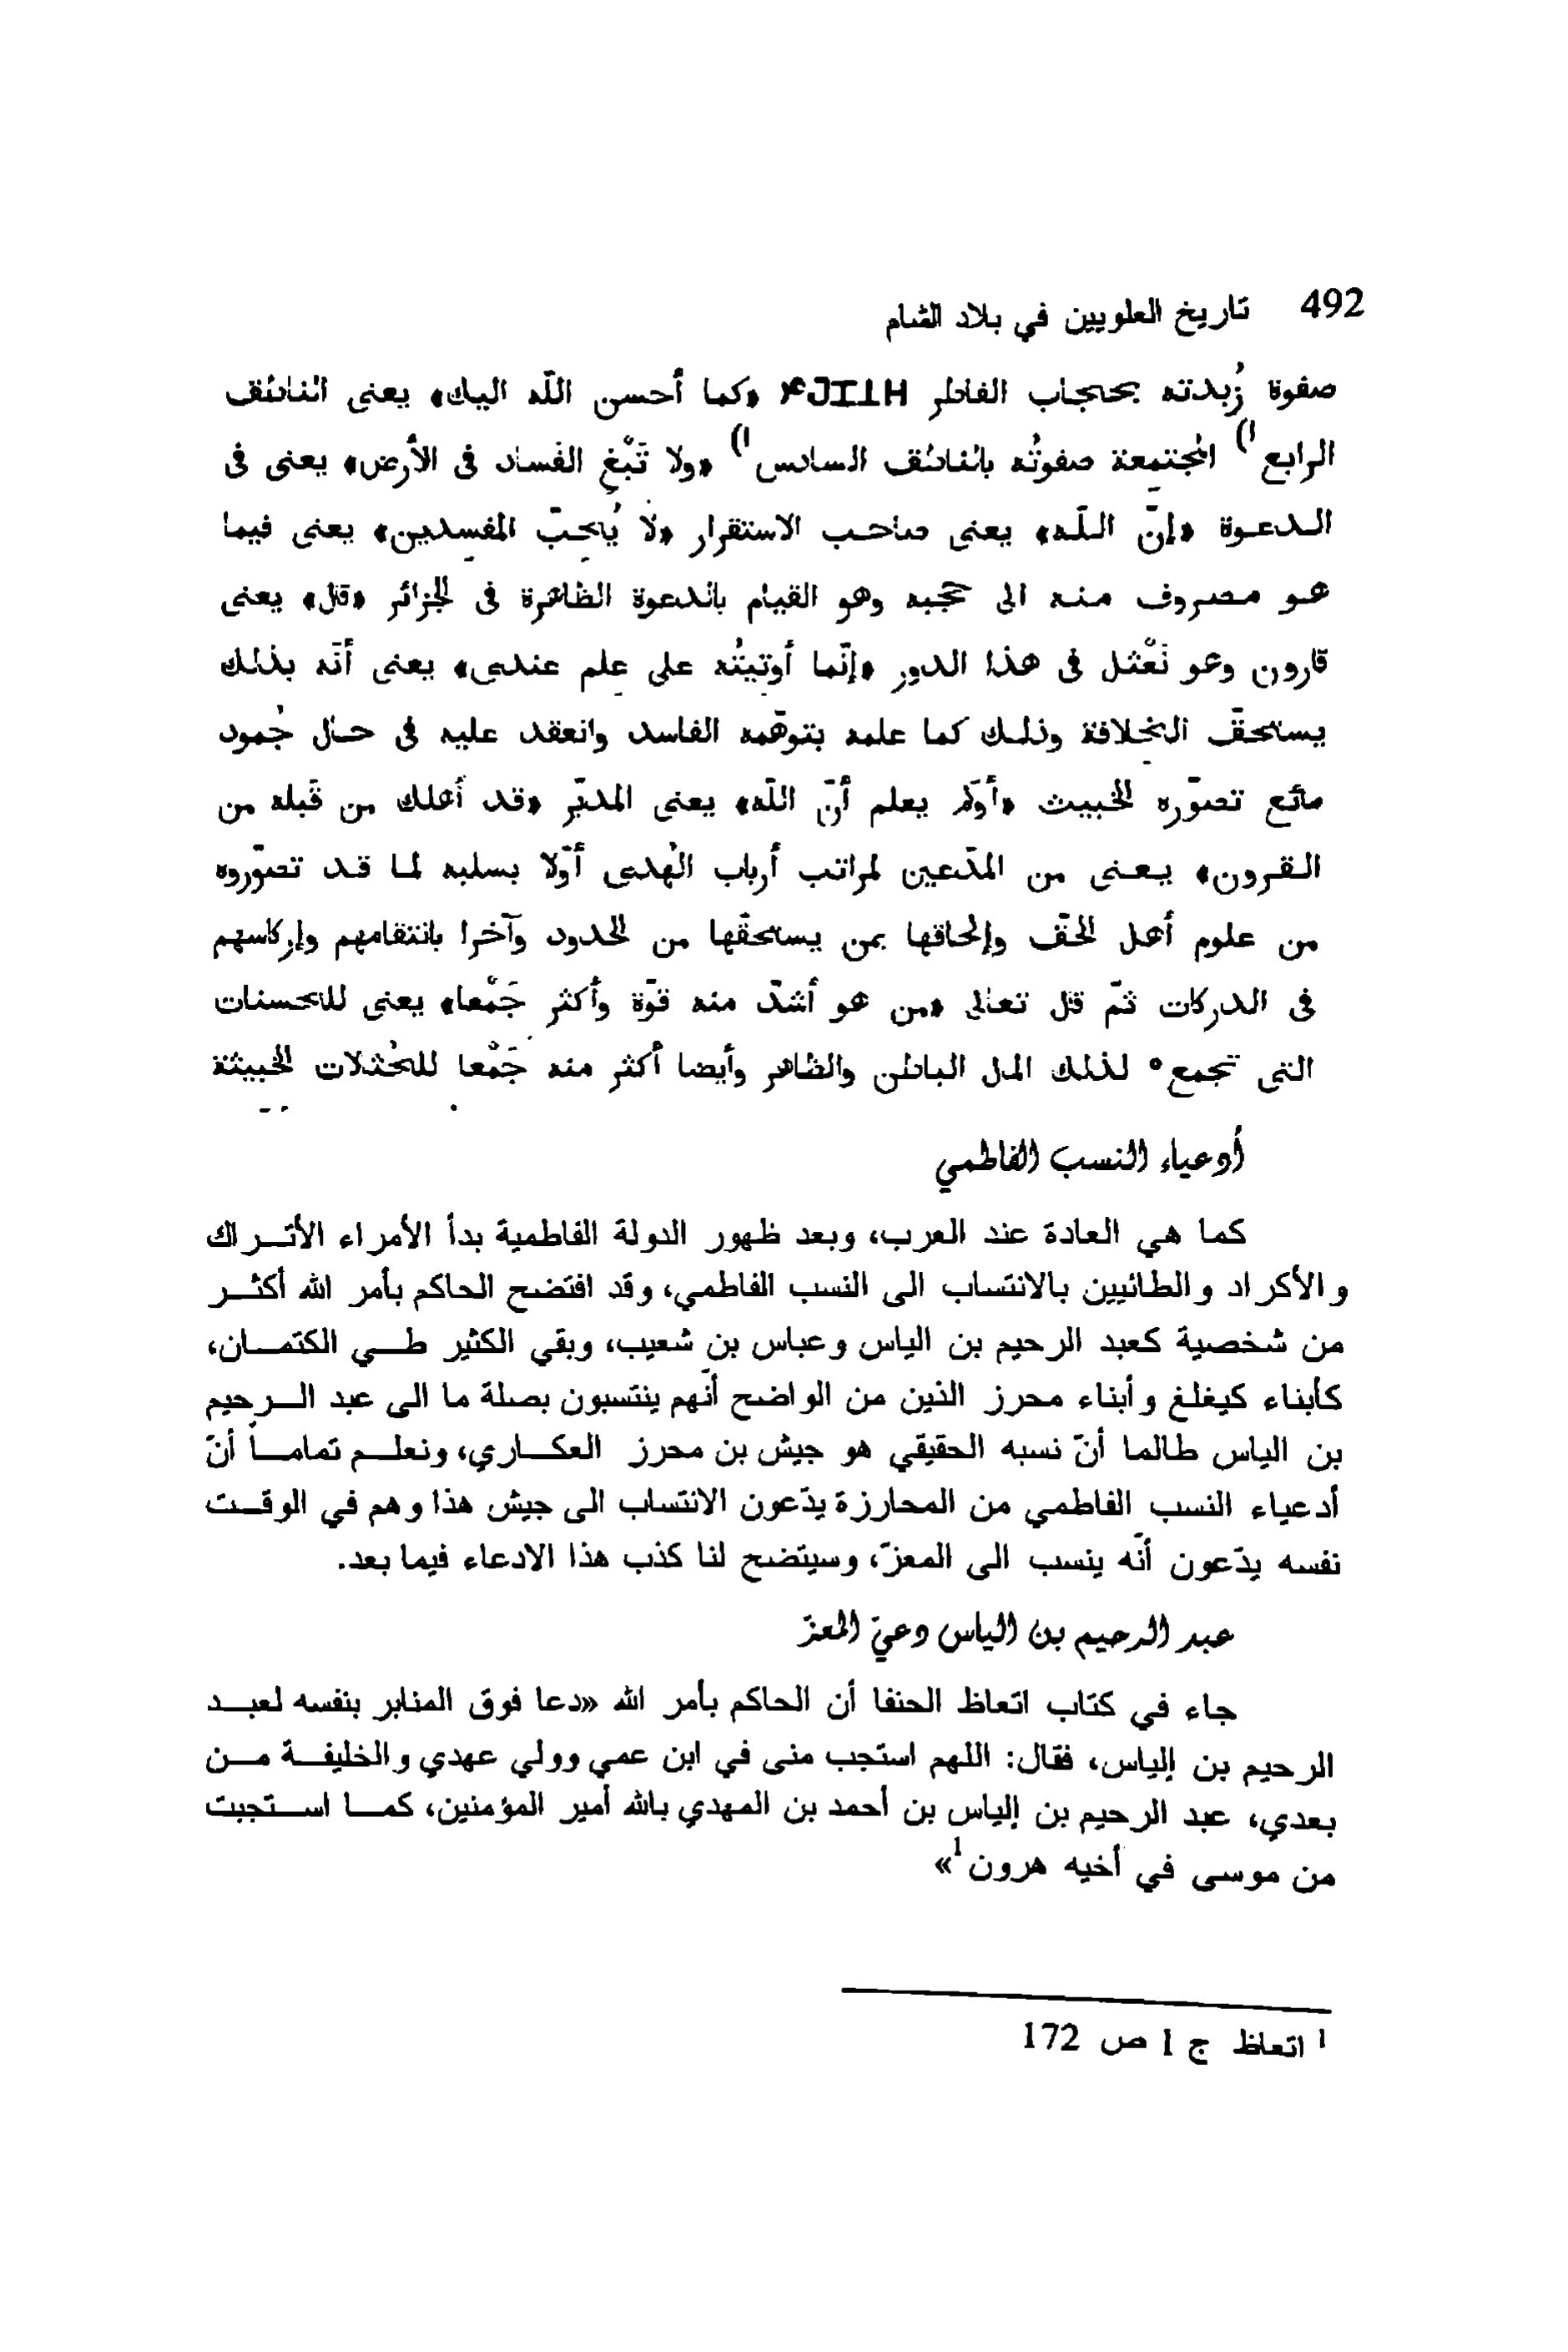 492 تاريخ العلويين في بلاد الشام
صفوة زُبدته بحجاب الفاطر «كما أحسن اللّه اليك» يعنى الناطق
الرابع المجتمعة صفوتُه بالناطق السادس «ولا تَبْغِ الفساد فى الأرض» يعنى فى
الدعوة «إنّ اللّه» يعنى صاحب الاستقرار «لا يُحبّ المفسدين» يعنى فيما
هو مصروف منه الى حججه وهو القيام بالدعوة الظاهرة فى الجزائر «قال» يعنى
قارون وهو نَعْثل فى هذا الدور «إنّما أوتيتُه على علم عندى» يعنى أنّه بذلك
يستحقّ الخلافة وذلك كما علمه بتوهّمه الفاسد وانعقد عليه فى حال جُمود
مائع تصوّره الخبيث «أوَلم يعلم أنّ اللّه» يعنى المدبّر «قد أهلك من قبله من
القرون» يعنى من المدّعين لمراتب أرباب الهُدى أوّلا بسلبه لما قد تصوّروه
من علوم أهل الحقّ وإلحاقها بمن يستحقّها من الحدود وآخرا بانتقامهم وإركاسهم
فى الدركات ثمّ قال تعالى «من هو أشدّ منه قوّة وأكثر جَمْعا» يعنى للحسنات
التى تجمع° لذلك المال الباطن والظاهر وأيضا أكثر منه جَمْعا للحُثلات الخبيثة
أدعياء النسب الفاطمي
كما هي العادة عند العرب، وبعد ظهور الدولة الفاطمية بدأ الأمراء الأتراك
والأكراد والطائيين بالانتساب الى النسب الفاطمي، وقد افتضح الحاكم بأمر الله أكثر
من شخصية كعبد الرحيم بن الياس وعباس بن شعيب، وبقي الكثير طي الكتمان،
كأبناء كيغلغ وأبناء محرز الذين من الواضح أنّهم ينتسبون بصلة ما الى عبد الرحيم
بن الياس طالما أنّ نسبه الحقيقي هو جيش بن محرز العكاري، ونعلم تماماً أنّ
أدعياء النسب الفاطمي من المحارزة يدّعون الانتساب الى جيش هذا وهم في الوقت
نفسه يدّعون أنّه ينسب الى المعزّ، وسيتضح لنا كذب هذا الادعاء فيما بعد.
عبد الرحيم بن الياس دعيّ المعزّ
جاء في كتاب اتعاظ الحنفا أن الحاكم بأمر الله «دعا فوق المنابر بنفسه لعبد
الرحيم بن إلياس، فقال: اللهم استجب منى في ابن عمي وولي عهدي والخليفة من
بعدي، عبد الرحيم بن إلياس بن أحمد بن المهدي بالله أمير المؤمنين، كما استجبت
من موسى في أخيه هرون¹»
¹ اتعاظ ج 1 ص 172